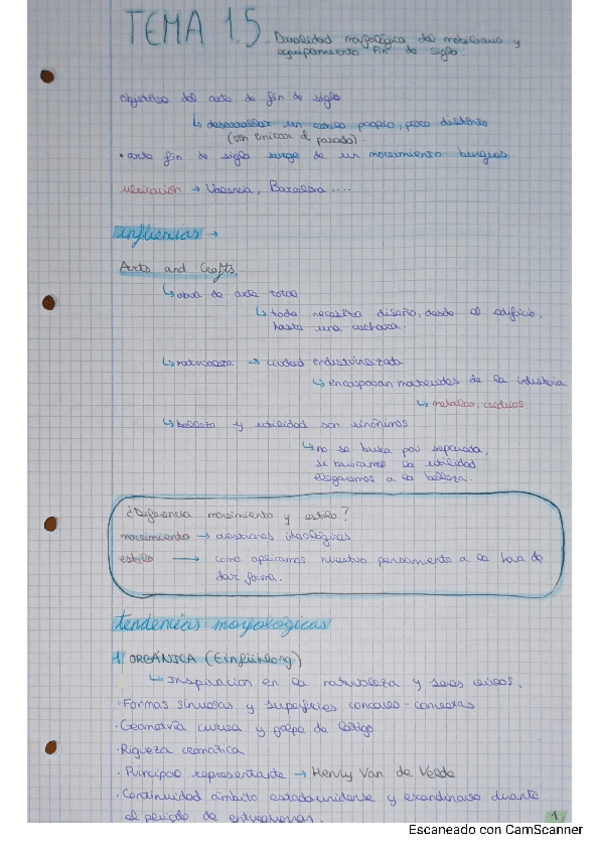 TEMA 1.5. Dualidad morfológica del mobiliario y
equipamiento fin de siglo.
objetivo del arte de fin de siglo
↳ desarrollar un estilo propio, puro distinto
(sin imitar el pasado).
• arte fin de siglo surge de un movimiento burgués.
ubicación → Valencia, Barcelona ....
influencias →
Arts and Crafts
↳ obra de arte total
↳ todo necesita diseño, desde el edificio,
hasta una cuchara.
↳ naturaleza → ciudad industrializada
↳ incorporan materiales de la industria
↳ metales, vidrios
↳ belleza y utilidad son sinónimos
↳ no se busca por separado,
si buscamos la utilidad
llegaremos a la belleza.
¿Diferencia movimiento y estilo?
movimiento → cuestiones ideológicas
estilo → como aplicamos nuestro pensamiento a la hora de
dar forma.
tendencias morfológicas
1. ORGÁNICA (Einfühlong)
↳ Inspiración en la naturaleza y seres vivos.
· Formas sinuosas y superficies concavas-convexas
· Geometría curva y golpe de látigo
· Riqueza cromática
· Principal representante → Henry Van de Velde
· Continuidad ámbito estadounidense y escandinavo durante
el periodo de entreguerras.
1
Escaneado con CamScanner